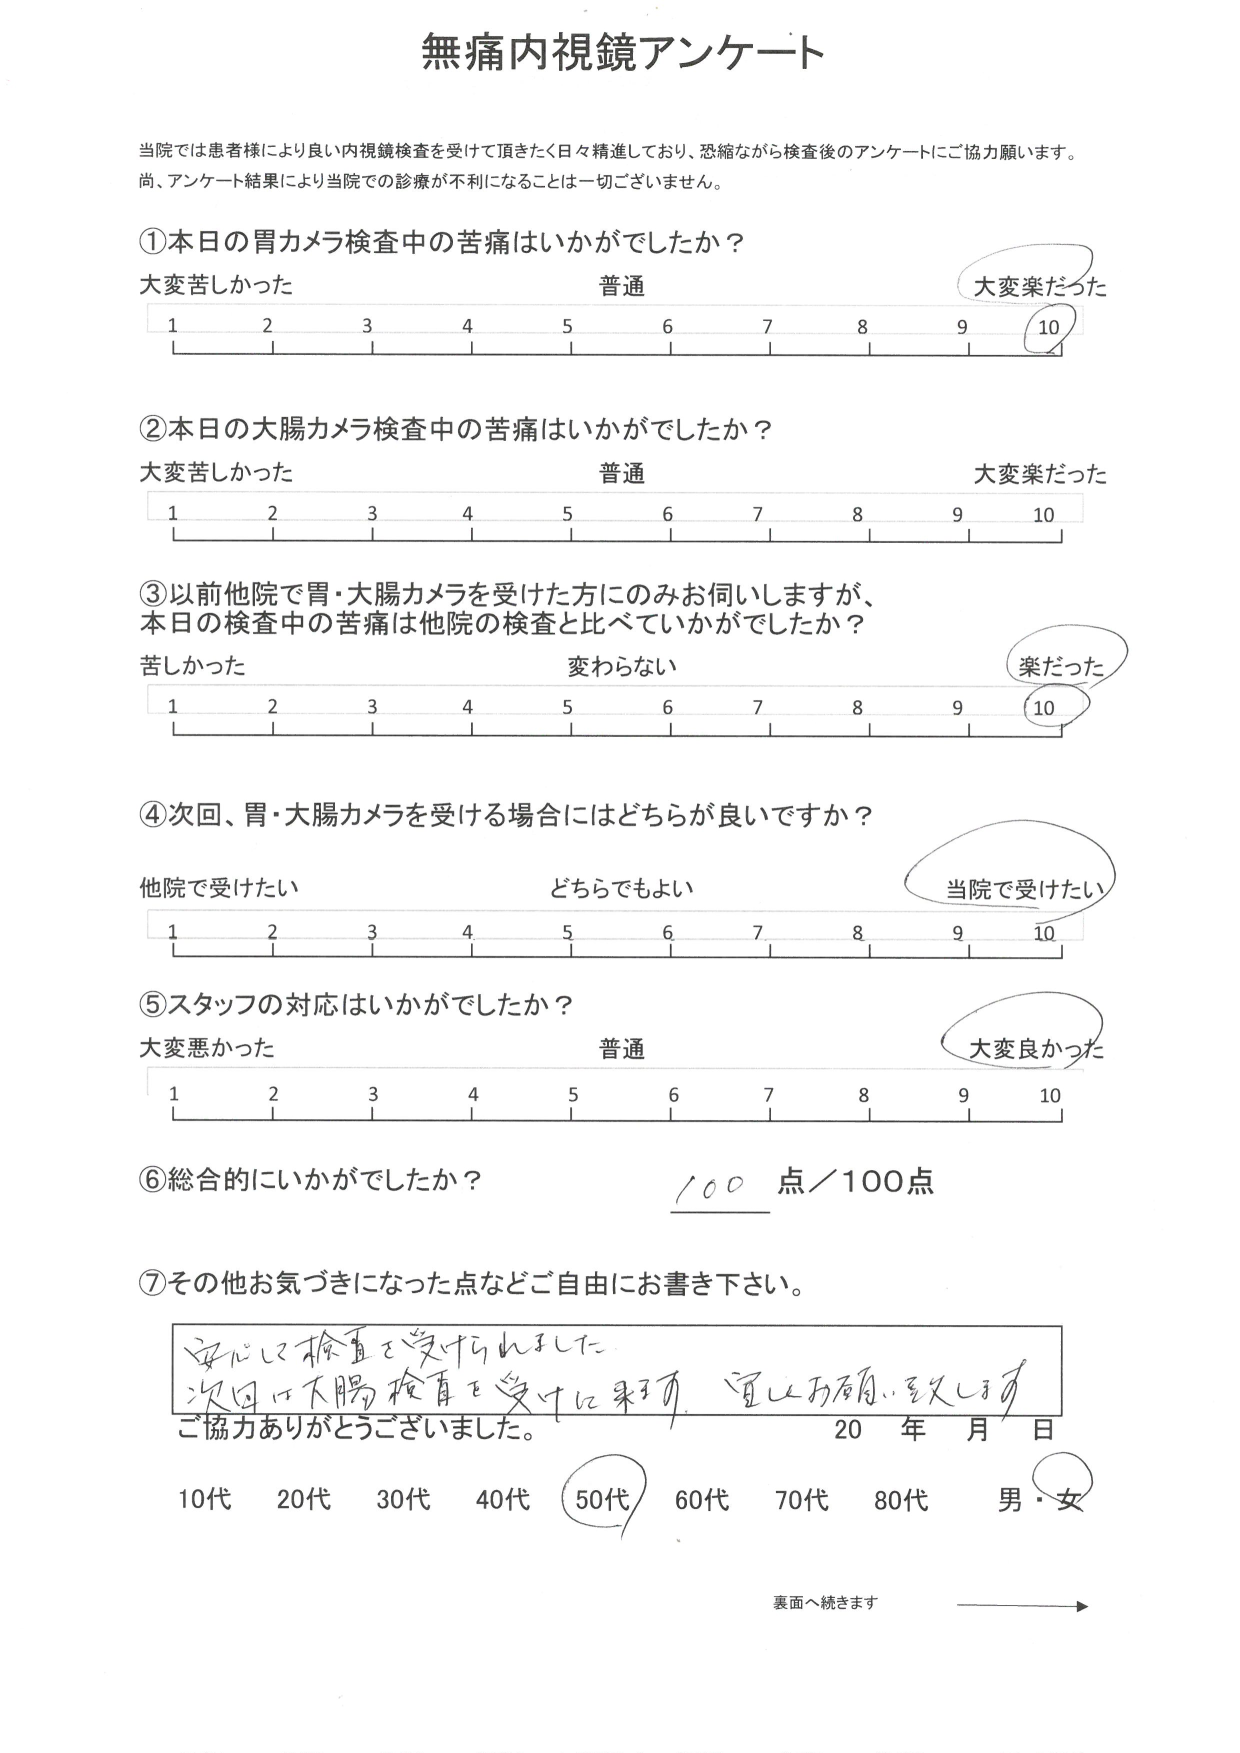 無痛内視鏡アンケート
当院では患者様により良い内視鏡検査を受けて頂きたく日々精進しており、恐縮ながら検査後のアンケートにご協力願います。
尚、アンケート結果により当院での診療が不利になることは一切ございません。
①本日の胃カメラ検査中の苦痛はいかがでしたか？
大変苦しかった 普通 大変楽だった
1 2 3 4 5 6 7 8 9 10
②本日の大腸カメラ検査中の苦痛はいかがでしたか？
大変苦しかった 普通 大変楽だった
1 2 3 4 5 6 7 8 9 10
③以前他院で胃・大腸カメラを受けた方にのみお伺いしますが、
本日の検査中の苦痛は他院の検査と比べていかがでしたか？
苦しかった 変わらない 楽だった
1 2 3 4 5 6 7 8 9 10
④次回、胃・大腸カメラを受ける場合にはどちらが良いですか？
他院で受けたい どちらでもよい 当院で受けたい
1 2 3 4 5 6 7 8 9 10
⑤スタッフの対応はいかがでしたか？
大変悪かった 普通 大変良かった
1 2 3 4 5 6 7 8 9 10
⑥総合的にいかがでしたか？ 100 点／100点
⑦その他お気づきになった点などご自由にお書き下さい。
安心して検査を受けられました
次回は大腸検査を受けに来ます。宜しくお願い致します
ご協力ありがとうございました。 20 年 月 日
10代 20代 30代 40代 50代 60代 70代 80代 男・女
裏面へ続きます